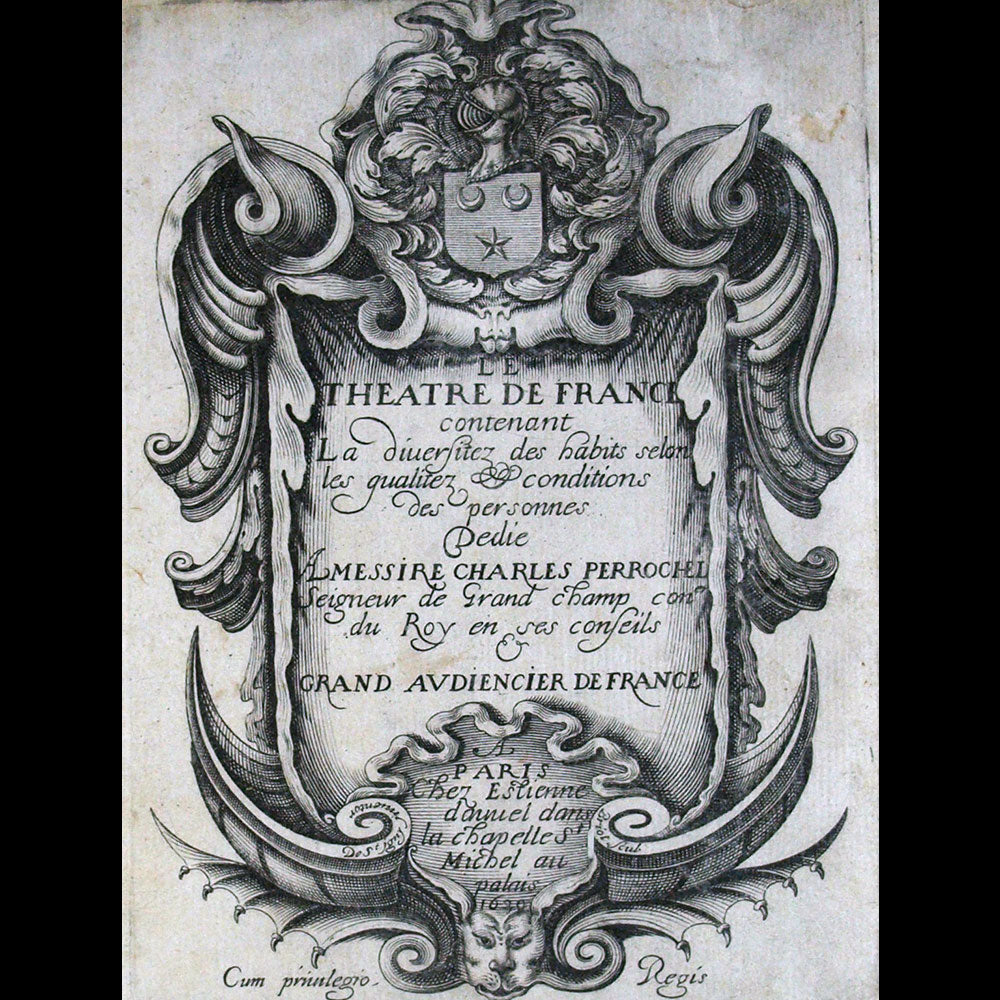 LE
THEATRE DE FRANCE
contenant
La diuersitez des habits selon
les qualitez & conditions
des personnes
Dedie
A MESSIRE CHARLES PERROCHEL
Seigneur de Grand champ con.er
du Roy en ses conseils
&
GRAND AVDIENCIER DE FRANCE
A
PARIS
Chez Estienne
dauuel dans
la chapelle St
Michel au
palais
1629
De St
Jnuentor
Briot Scul.
Cum priuilegio. Regis